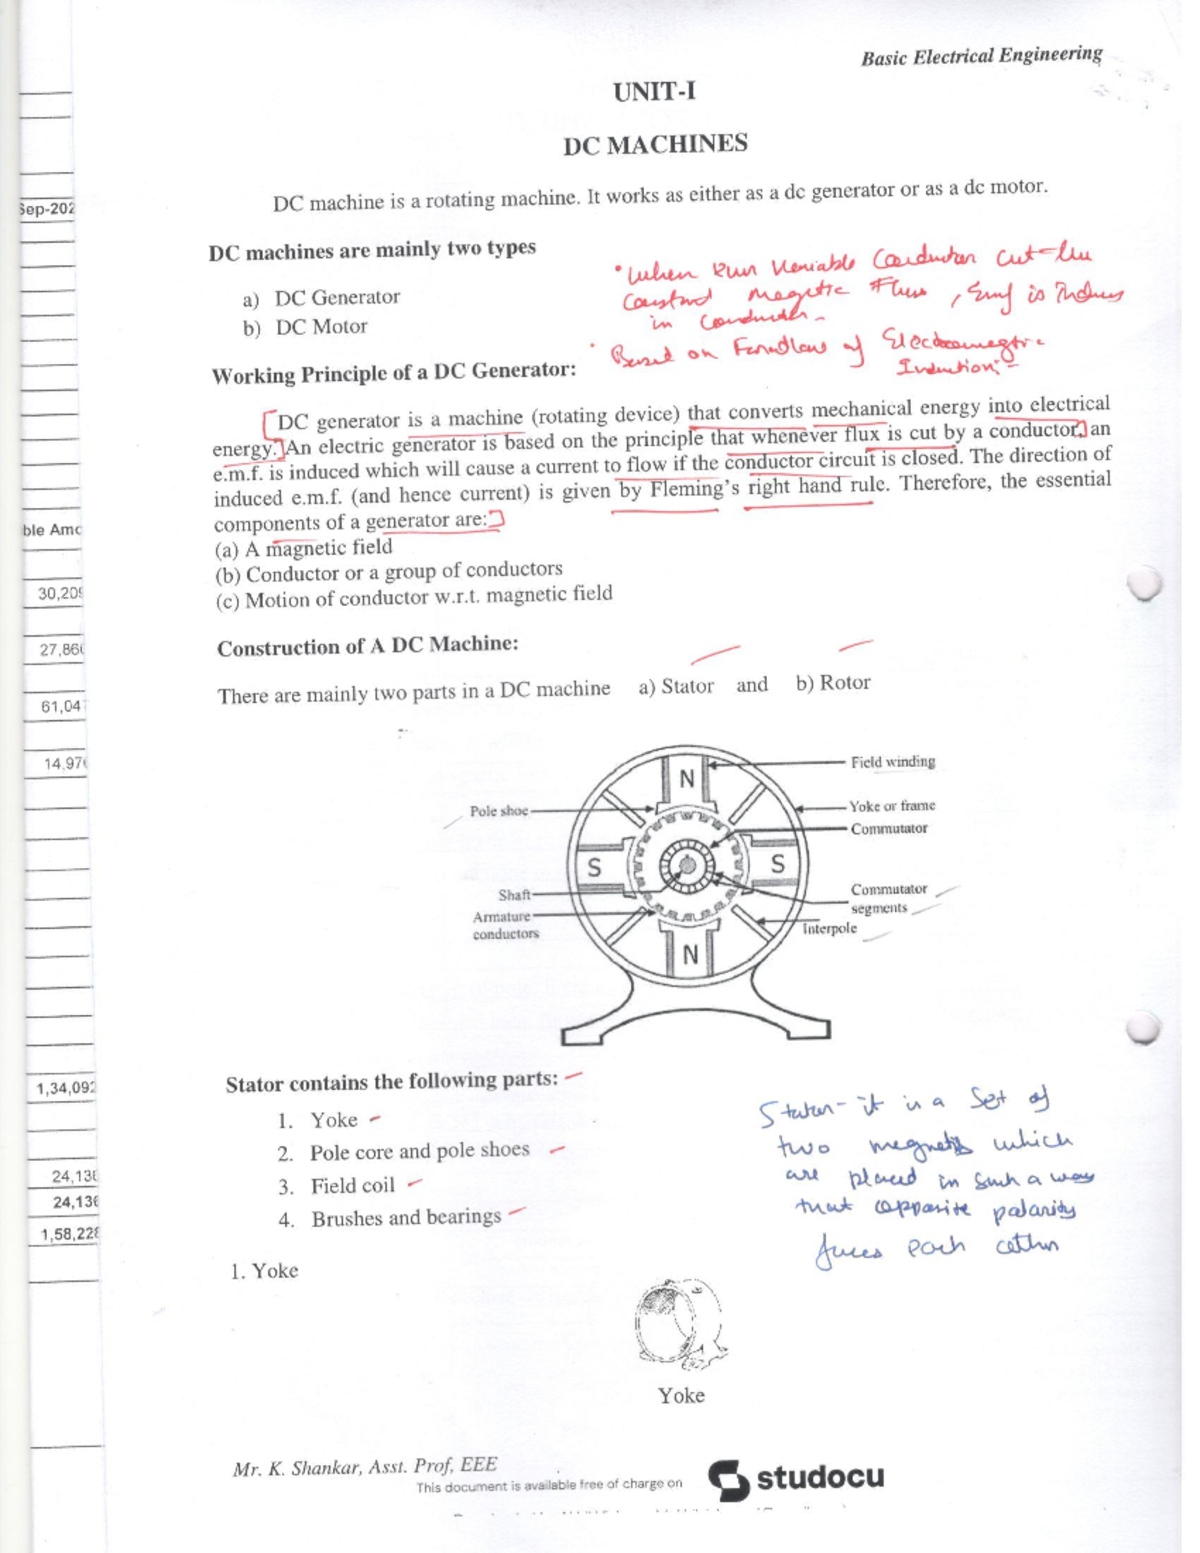 Basic Electrical Engineering
UNIT-I
DC MACHINES
DC machine is a rotating machine. It works as either as a dc generator or as a dc motor.
Sep-202
DC machines are mainly two types
a) DC Generator
b) DC Motor
• When Conductor cut the
Flux , Emf is
in Conductor
• Based on of
Induction
Working Principle of a DC Generator:
DC generator is a machine (rotating device) that converts mechanical energy into electrical
energy. An electric generator is based on the principle that whenever flux is cut by a conductor, an
e.m.f. is induced which will cause a current to flow if the conductor circuit is closed. The direction of
induced e.m.f. (and hence current) is given by Fleming's right hand rule. Therefore, the essential
components of a generator are:
(a) A magnetic field
(b) Conductor or a group of conductors
(c) Motion of conductor w.r.t. magnetic field
ble Amo
30,209
27,860
61,04
14,970
Construction of A DC Machine:
There are mainly two parts in a DC machine a) Stator and b) Rotor
Field winding
N
Pole shoe
Yoke or frame
Commutator
S
S
Shaft
Commutator
segments
Armature
conductors
Interpole
N
Stator contains the following parts:
1. Yoke
2. Pole core and pole shoes
3. Field coil
4. Brushes and bearings
Stator - it is a Set of
two which
are placed in such a way
that opposite
faces each
1,34,092
24,136
24,136
1,58,228
1. Yoke
Yoke
Mr. K. Shankar, Asst. Prof, EEE
This document is available free of charge on
studocu